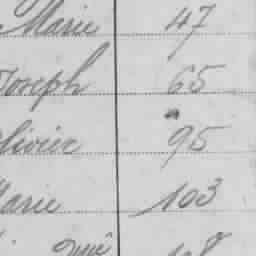 Marie 47
Joseph 65
Olivier 95
Marie 103